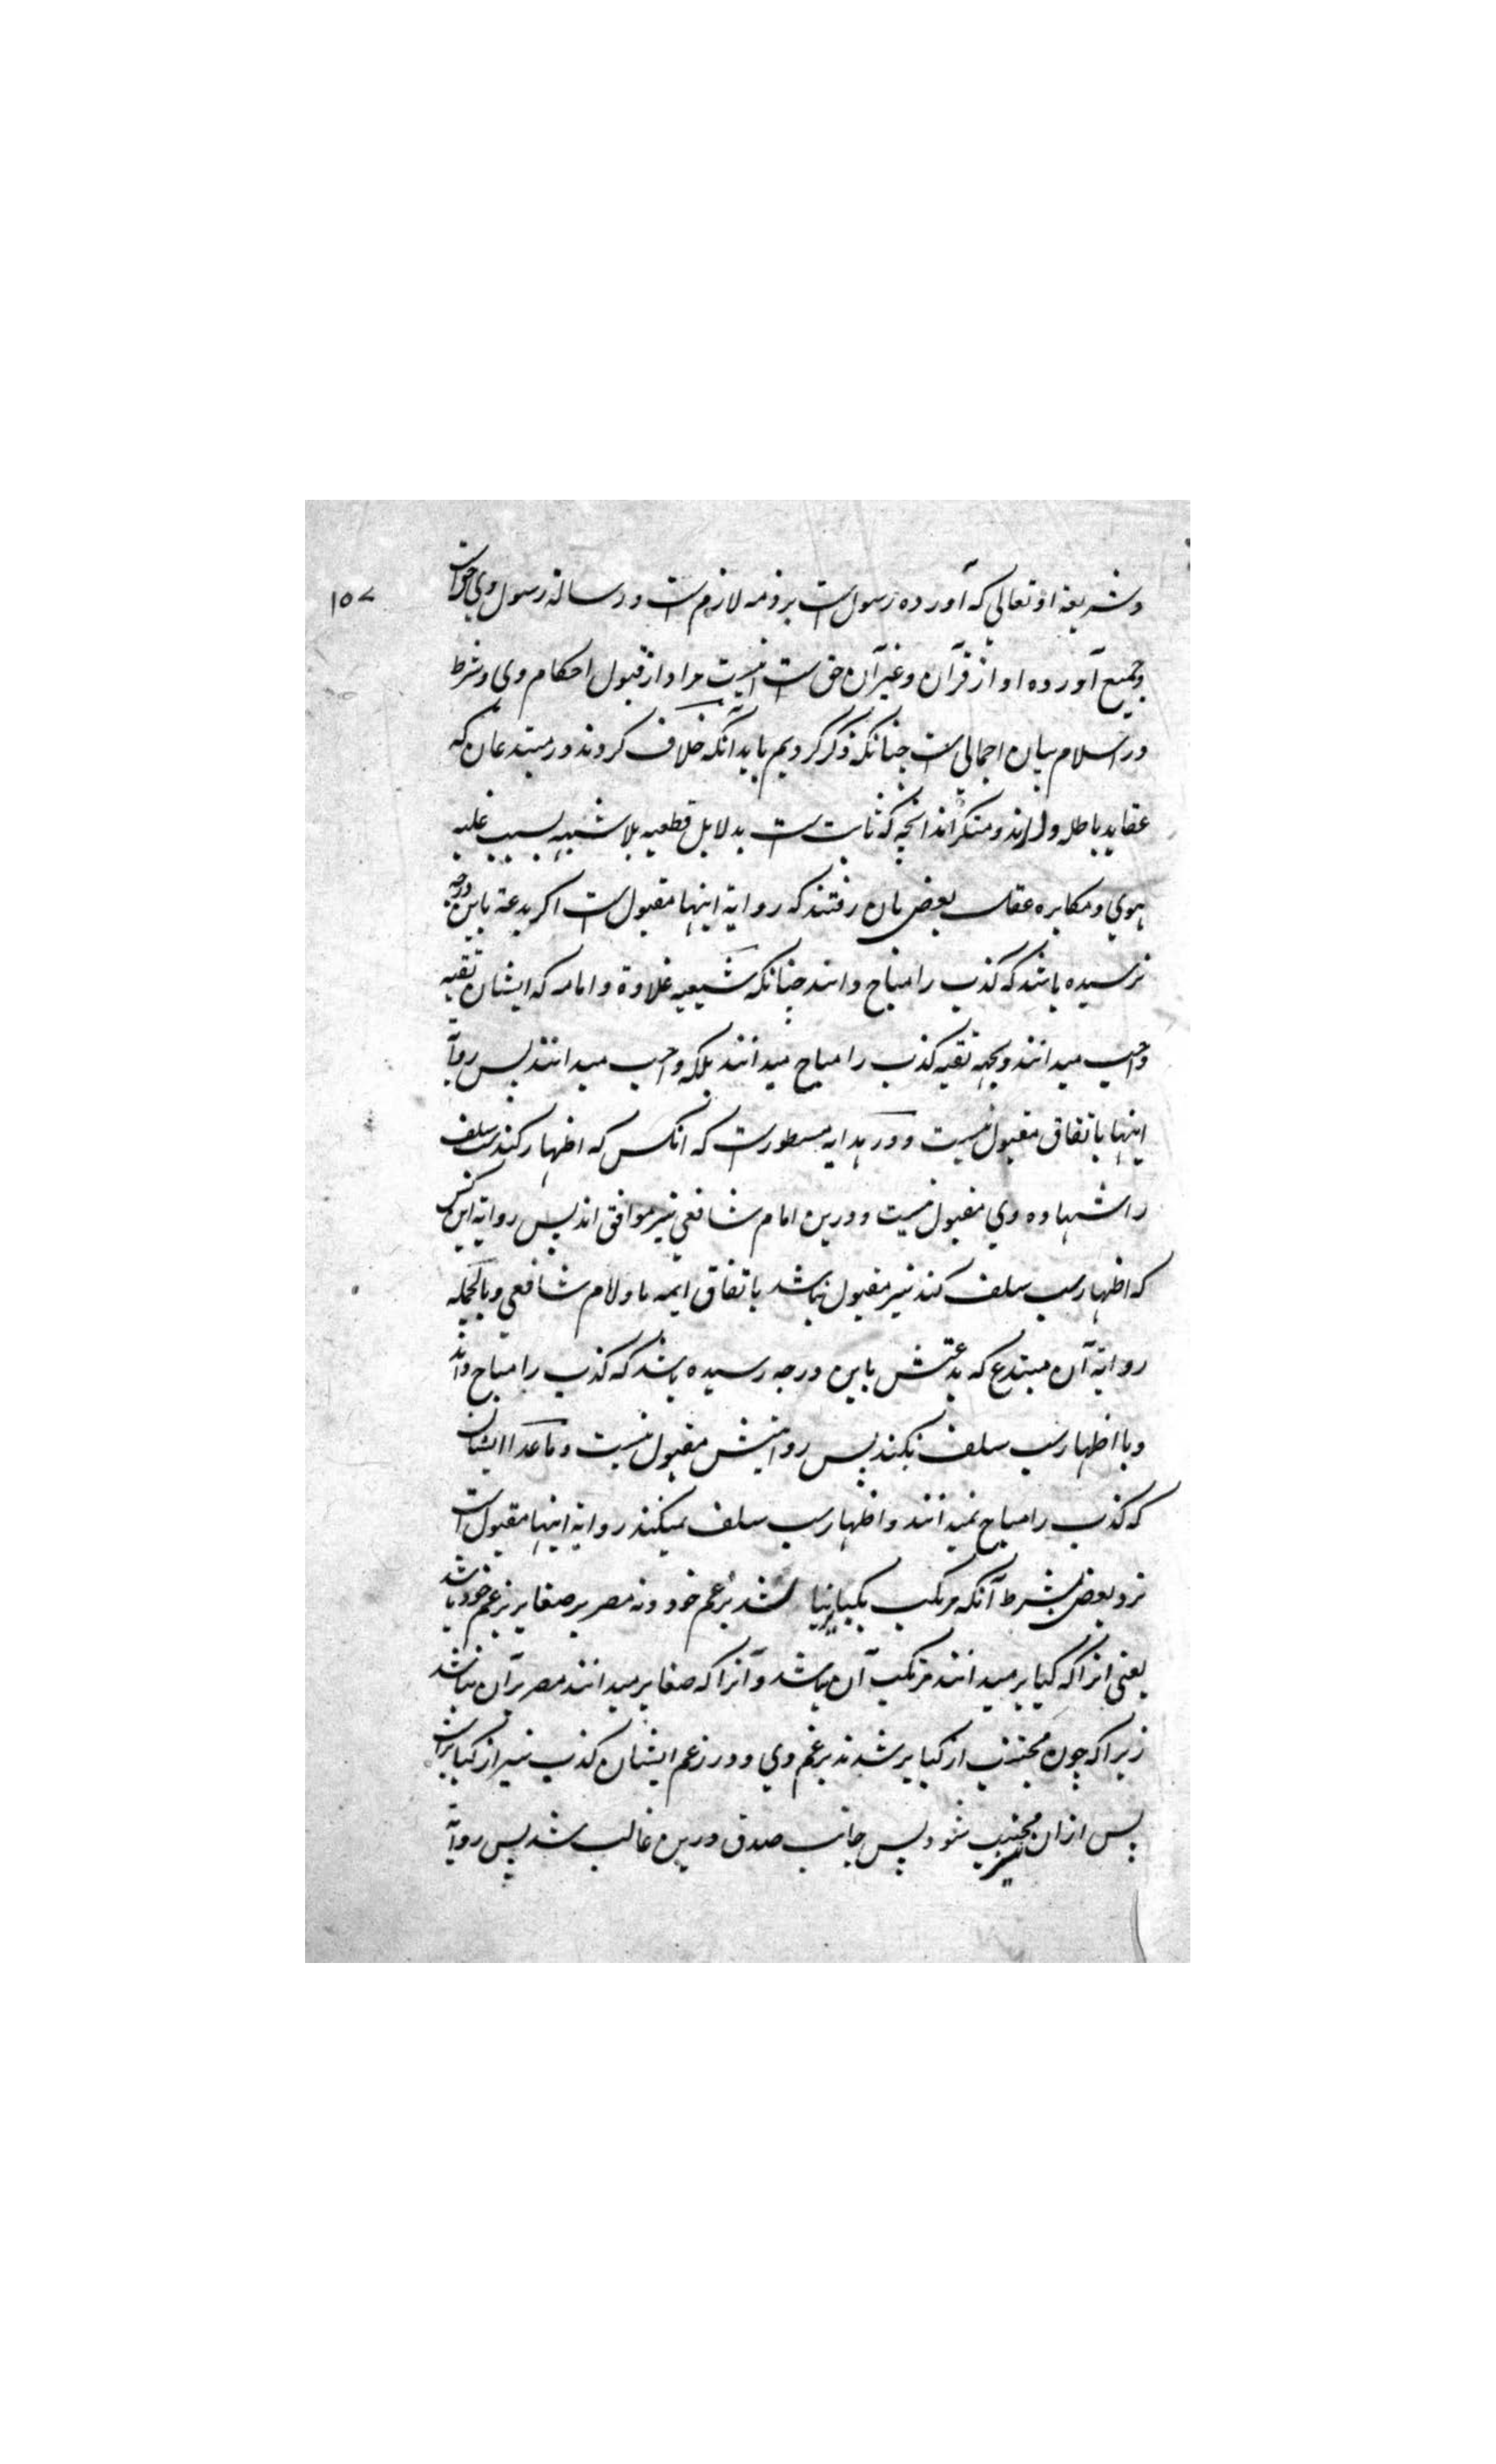 ۱۵۷
وشریعة او تعالی که آورده رسول است بر ذمه لازم است ورسالة رسول وی حق است
وجمیع آورده او از قرآن وغیر آن حق است اینست مراد از قبول احکام وی وشرط
در اسلام بیان اجمالی است چنانکه ذکر کردیم بایدآنکه خلاف کردند در مبتدعان که
عقاید باطله دارند ومنکر اند انچه که ثابت است بدلایل قطعیه بلا شبهه بسبب غلبه
هوی ومکابره عقل بعض بان رفتند که روایة اینها مقبول است اگر بدعة باین درجه
نرسیده باشد که کذب را مباح دانند چنانکه شیعیه غلاوة وامامه که ایشان تقیه
واجب میدانند وبجهة تقیه کذب را مباح میدانند بلکه واجب میدانند پس روایة
اینها باتفاق مقبول نیست ودر هدایه مسطورست که انکس که اظهار کند سب سلف
را شهاده وی مقبول نیست ودرین امام شافعی نیز موافق اند پس روایة این کس
که اظهار سب سلف کند نیز مقبول نباشد باتفاق ایمه ما وامام شافعی وبالجمله
روایة آن مبتدع که بدعتش باین درجه رسیده باشد که کذب را مباح داند
ویا اظهار سب سلف بکند پس روایتش مقبول نیست وماعدا ایشان
که کذب را مباح نمیدانند واظهار سب سلف نمیکنند روایة اینها مقبول است
نزد بعض بشرط آنکه مرتکب بکبایر نباشد بزعم خود ونه مصر بر صغایر بزعم خود باشد
یعنی انرا که کبایر میدانند مرتکب آن نباشد وآنرا که صغایر میدانند مصر برآن نباشد
زیرا که چون مجتنب از کبایر شدند بزعم وی ودر زعم ایشان کذب نیز از کبایر است
پس ازان مجتنب شود پس جانب صدق درین غالب شد پس روایة